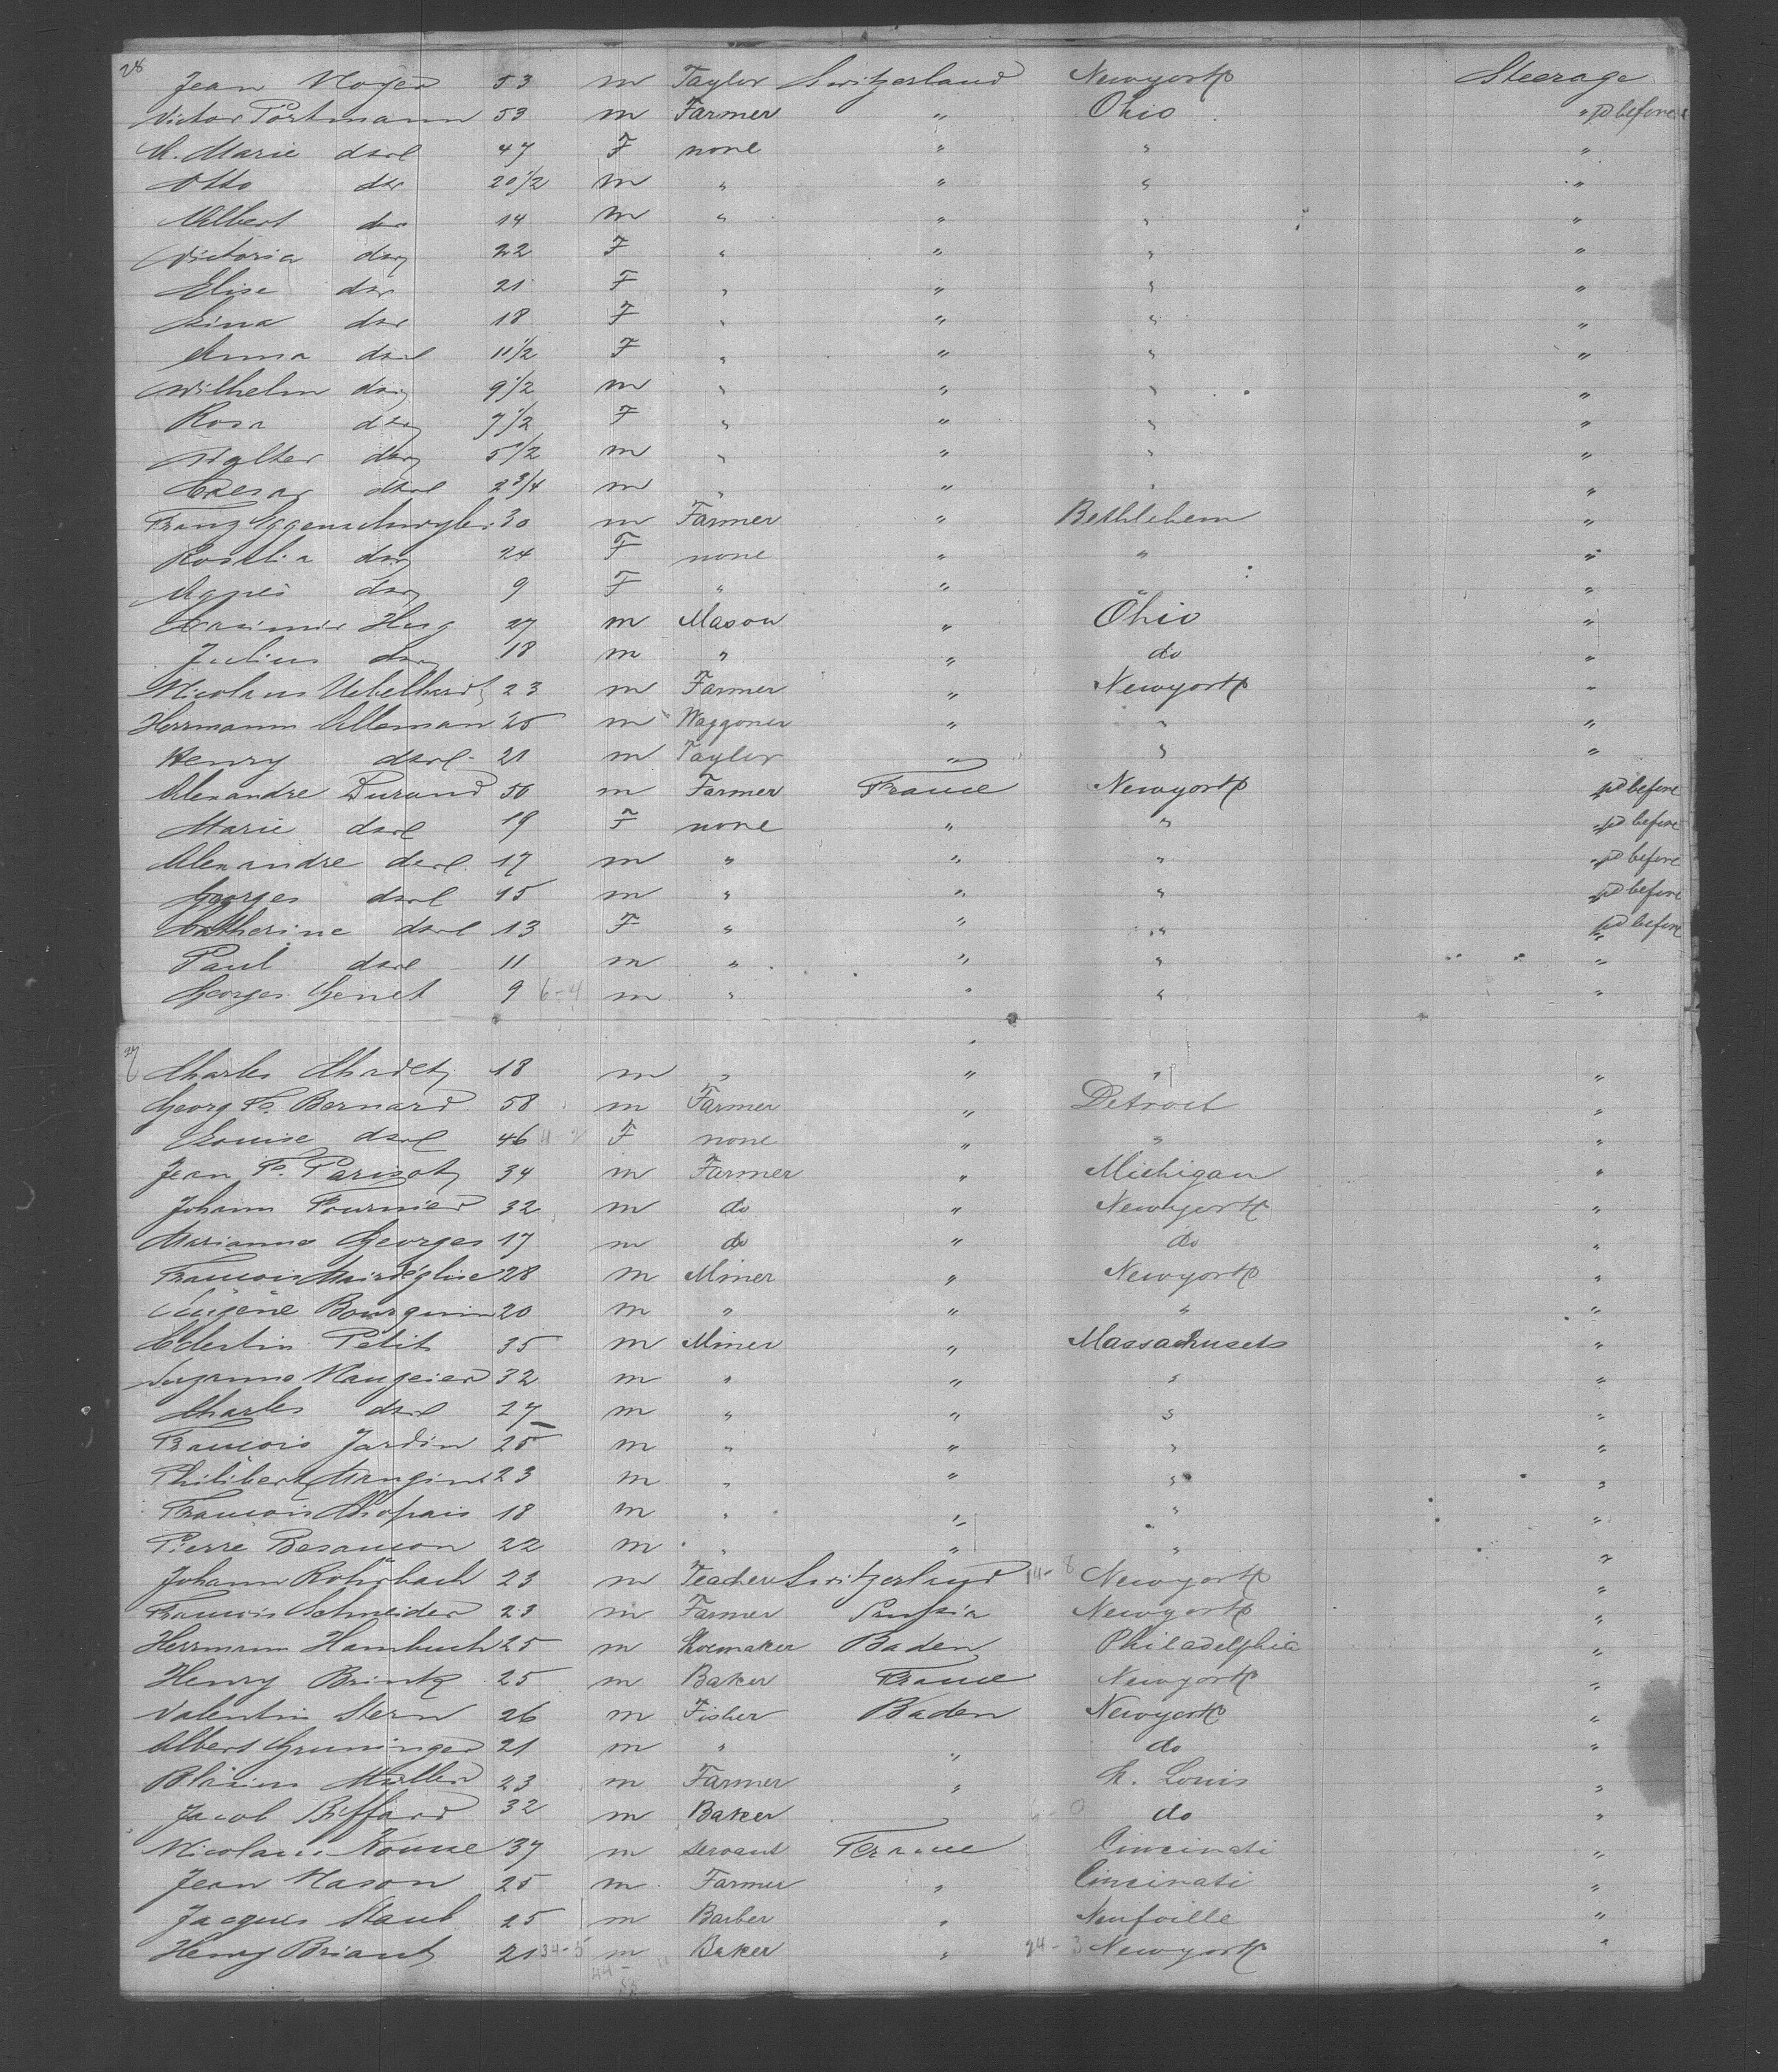 28 Jean Noyer 53 m Taylor Switzerland Newyork Steerage
Victor Portmann 53 m Farmer " Ohio " pd before
M. Marie dsrl 47 F none " " "
Otto dsr 20 1/2 m " " " "
Albert dsr 14 m " " " "
Victoria dsrl 22 F " " " "
Elise dsr 21 F " " " "
Lina dsr 18 F " " " "
Anna dsrl 11 1/2 F " " " "
Wilhelm dsrl 9 1/2 m " " " "
Rosa dsrl 7 1/2 F " " " "
Walter dsrl 5 1/2 m " " " "
Caesar dsrl 2 3/4 m " " " "
Franz Eggenschwyler 30 m Farmer " Bethlehem "
Rosalia dsrl 24 F none " " "
Agnes dsrl 9 F " " " "
Casimir Hug 27 m Mason " Ohio "
Julius dsrl 18 m " " do "
Nicolaus Uebelhardt 23 m Farmer " Newyork "
Herrmann Alleman 25 m Waggoner " " "
Henry dsrl 21 m Taylor " " "
Alexandre Durand 50 m Farmer France Newyork " pd before
Marie dsrl 19 F none " " " pd before
Alexandre dsrl 17 m " " " " pd before
Georges dsrl 15 m " " " " pd before
Catherine dsrl 13 F " " " " pd before
Paul dsrl 11 m " " " "
Georges Genet 9 6-4 m " " " "
Charles 18 m " " " "
Georg Fs. Bernard 58 m Farmer " Detroit "
Louise dsrl 46 F none " " "
Jean Fs. Parisot 34 m Farmer " Michigan "
Johann Fournier 32 m do " Newyork "
Marianna Georges 17 m do " do "
Francois 28 m Miner " Newyork "
Eugène Bourquin 20 m " " " "
Celestin Petit 35 m Miner " Massachusets "
Suzanne Naugeier 32 m " " " "
Charles dsrl 27 m " " " "
Francois Jardin 25 m " " " "
Philibert Mangin 23 m " " " "
Francois 18 m " " " "
Pierre Besancon 22 m " " " "
Johann Röhrbach 23 m Teacher Switzerland 14-8 Newyork "
Francois Schneider 23 m Farmer Prussia Newyork "
Herrmann Hambuch 25 m Shoemaker Baden Philadelphia "
Henry Brink 25 m Baker France Newyork "
Valentin Stern 26 m Fisher Baden Newyork "
Albert Gruninger 21 m " " do "
Blasius Müller 23 m Farmer " St. Louis "
Jacob Biffard 32 m Baker do "
Nicolaus Konne 37 m servant France Cincinati "
Jean Nason 25 m Farmer " Cincinati "
Jacques Staub 25 m Barber " "
Henry Briant 21 34-5 m Baker " 24-3 Newyork "